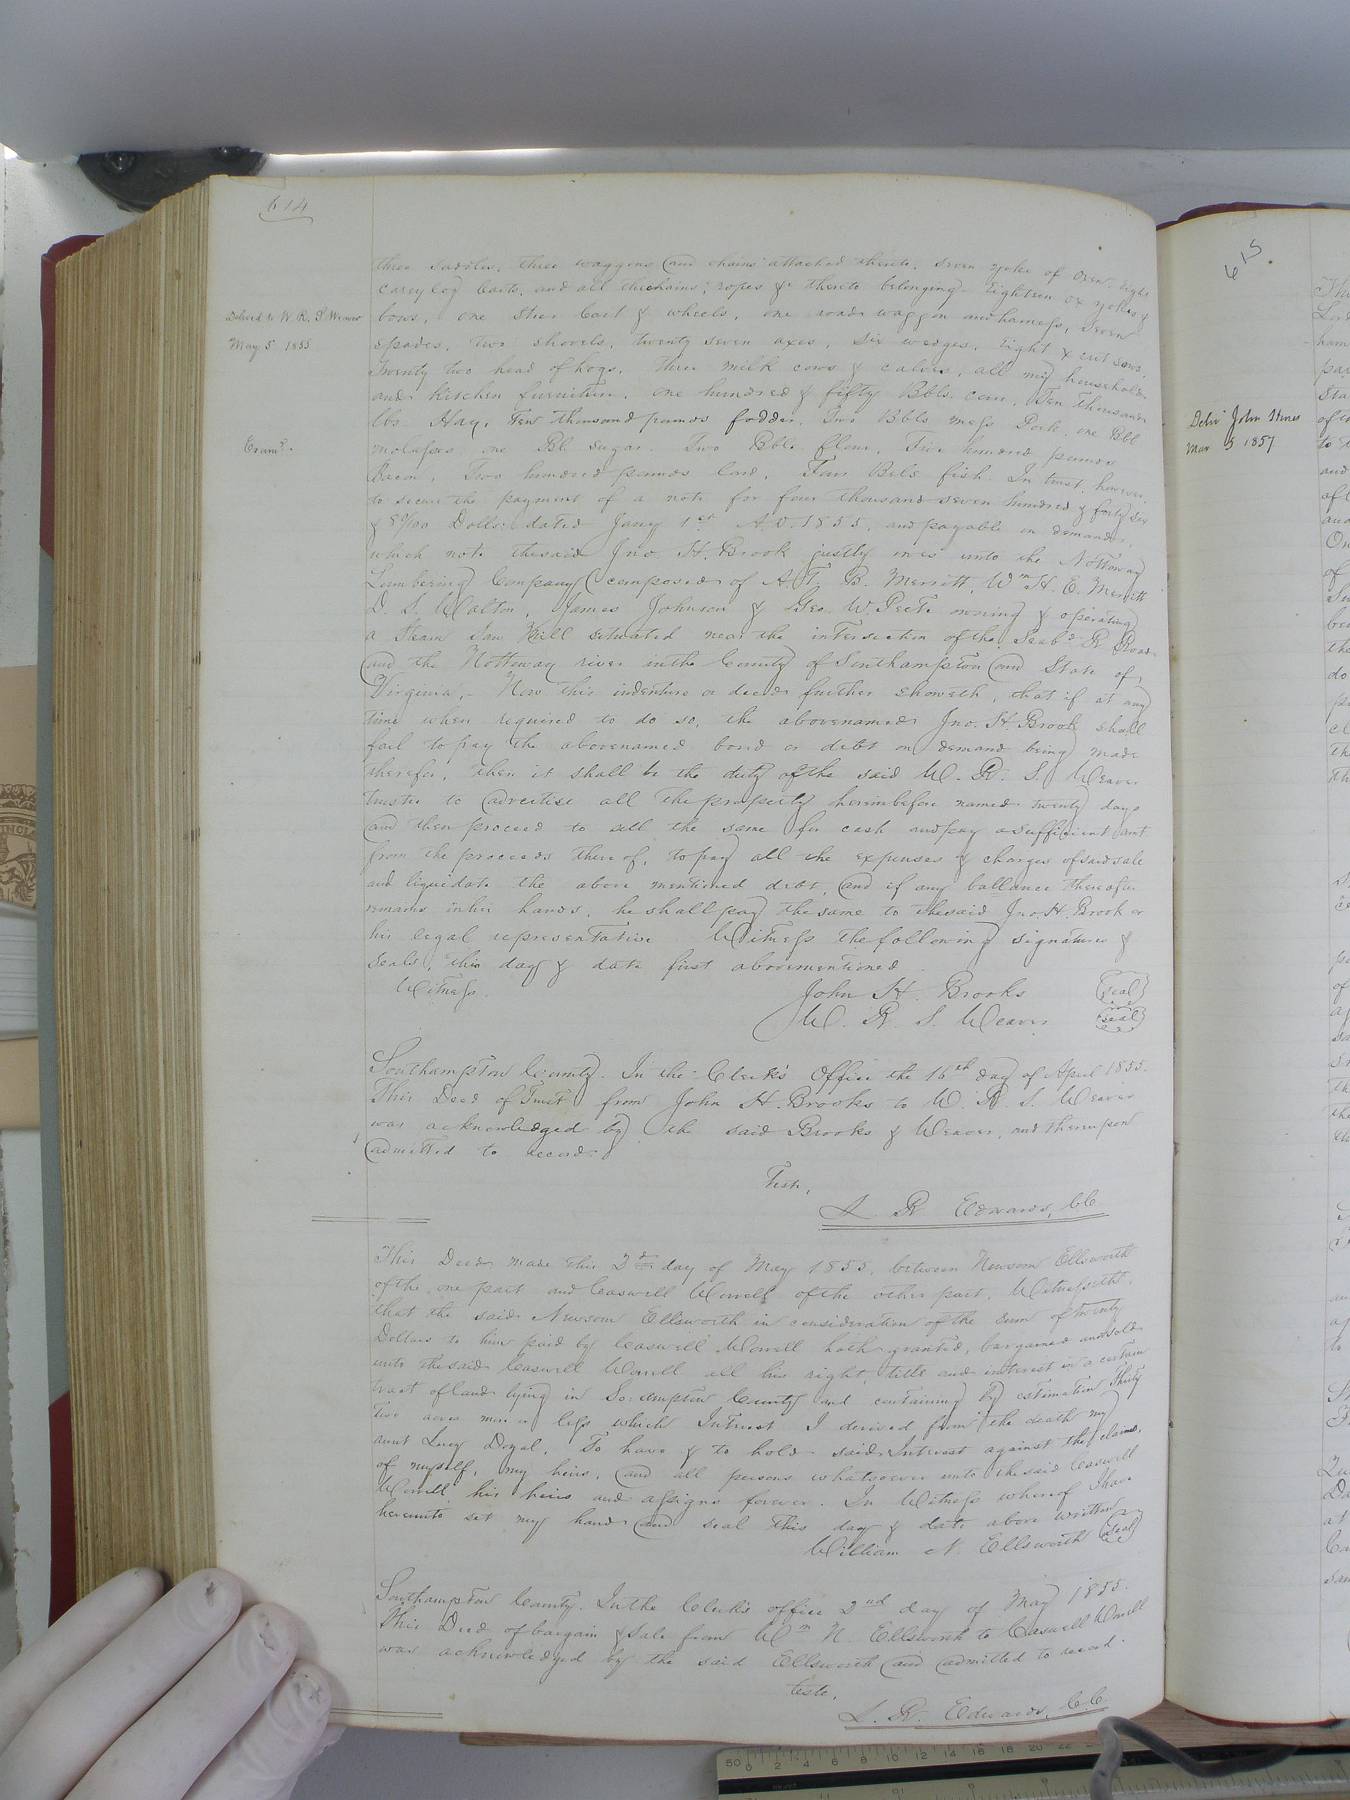 614
three saddles, three waggons and chains attached thereto, seven yoke of oxen, eight
carry log Carts, and all the chains, ropes &c thereto belonging Eighteen ox yokes &
Deliverd to W. R. S Weaver
bows, one Steer Cart & wheels, one road waggon and harness, seven
May 5 1855
spades, two shovels, twenty seven axes, six wedges, Eight X cut saws,
Twenty two head of hogs, three milk cows & calves, all my household
and kitchen furniture, one hundred & fifty Bbls. corn, Ten Thousand
lbs. Hay, Ten thousand pounds fodder, Two Bbls mess Pork, one Bbl
Examd.
molasses, one Bl. sugar, Two Bbls. flour, Five hundred pounds
Bacon, Two hundred pounds lard, Four Bbls fish. In trust, however,
to secure the payment of a note for four thousand seven hundred & forty six
& /100 Dolls: dated Jany 1st A.D. 1855, and payable on demand,
which note the said Jno. H. Brook justly owes unto the Nottoway
Lumbering Company (composed of A. T. B. Merritt, Wm H. E. Merritt
D. S. Walton, James Johnson & Geo. W. Peete owning & operating
a Steam Saw Mill situated near the intersection of the Seabd R Road
and the Nottoway river in the County of Southampton and State of
Virginia,- Now this indenture or deed further showeth, that if at any
time when required to do so, the abovenamed Jno. H. Brook shall
fail to pay the abovenamed bond or debt on demand being made
therefor, then it shall be the duty of the said W. R. S. Weaver
trustee to advertise all the property hereinbefore named twenty days
and then proceed to sell the same for cash and pay a sufficient amt
from the proceeds thereof, to pay all the expenses & charges of said sale
and liquidate the above mentioned debt, and if any ballance thereafter
remains in his hands, he shall pay the same to the said Jno. H. Brook or
his legal representative Witness the following signatures &
seals, this day & date first abovementioned
Witness. John H. Brooks (seal)
W. R. S. Weaver (seal)
Southampton County. In the Clerk's Office the 16th day of April 1855.
This Deed of Trust from John H. Brooks to W. R. S. Weaver
was acknowledged by the said Brooks & Weaver, and thereupon
admitted to record
Teste,
L R Edwards, CC
This Deed made this 2d day of May 1855, between Newsom Ellsworth
of the one part and Caswell Worrell of the other part, Witnesseth,
that the said Newsom Ellsworth in consideration of the sum of twenty
Dollars to him paid by Caswell Worrell hath granted, bargained and sold
unto the said Caswell Worrell all his right, title and interest in a certain
tract of land lying in So.ampton County and containing by estimation Thirty
Two acres more or less which Intrest I derived from the death my
aunt Lucy Doyal. To have & to hold said Intrest against the claims,
of myself, my heirs, and all persons whatsoever unto the said Caswell
Worrell, his heirs and assigns forever. In Witness whereof I have
hereunto set my hand and seal this day & date above written
William N. Ellsworth (seal)
Southampton County. In the Clerk's office 2nd day of May 1855.
This Deed of bargain & Sale from Wm N. Ellsworth to Caswell Worrell
was acknowledged by the said Ellsworth and admitted to record.
Teste,
L. R. Edwards, CC
615
Delivd John Hines
Mar 5 1857